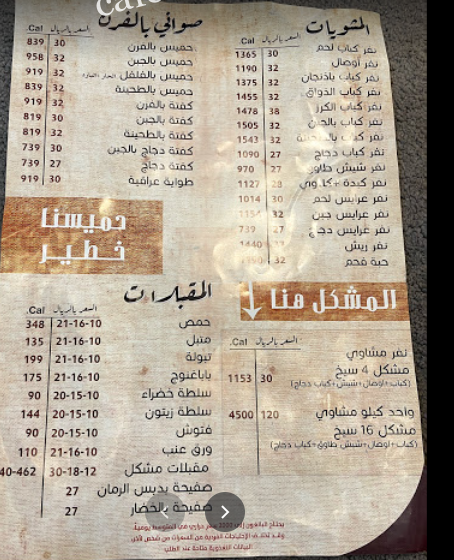 المشويات
السعر بالريال Cal.
نفر كباب لحم 30 1365
نفر أوصال 32 1190
نفر كباب باذنجان 32 1375
نفر كباب الذواق 32 1455
نفر كباب الكرز 38 1478
نفر كباب بالجبن 32 1505
نفر كباب 32 1543
نفر كباب دجاج 27 1090
نفر شيش طاوق 27 970
نفر كبدة + كلاوي 28 1127
نفر عرايس لحم 30 1014
نفر عرايس جبن 32 1154
نفر عرايس دجاج 27 739
نفر ريش
حبة فحم 32
المشكل هنا
السعر بالريال Cal.
نفر مشاوي
مشكل 4 سيخ 30 1153
(كباب+اوصال+شيش+كباب دجاج)
واحد كيلو مشاوي 120 4500
مشكل 16 سيخ
(كباب+اوصال+شيش طاوق+كباب دجاج)
صواني بالفرن
السعر بالريال Cal.
خميس بالفرن 30 839
خميس بالجبن 32 958
خميس بالفلفل 32 919
خميس بالطحينة 32 839
كفتة بالفرن 32 919
كفتة بالجبن 30 819
كفتة بالطحينة 32 819
كفتة دجاج بالجبن 30 739
كفتة دجاج 27 739
طواية عراقية 30 919
خميسنا
خطير
المقبلات
السعر بالريال Cal.
حمص 21-16-10 348
متبل 21-16-10 135
تبولة 21-16-10 199
باباغنوج 21-16-10 175
سلطة خضراء 20-15-10 90
سلطة زيتون 20-15-10 144
فتوش 20-15-10 90
ورق عنب 21-16-10 110
مقبلات مشكل 30-18-12 40-462
صفيحة بدبس الرمان 27
صفيحة بالخضار 27